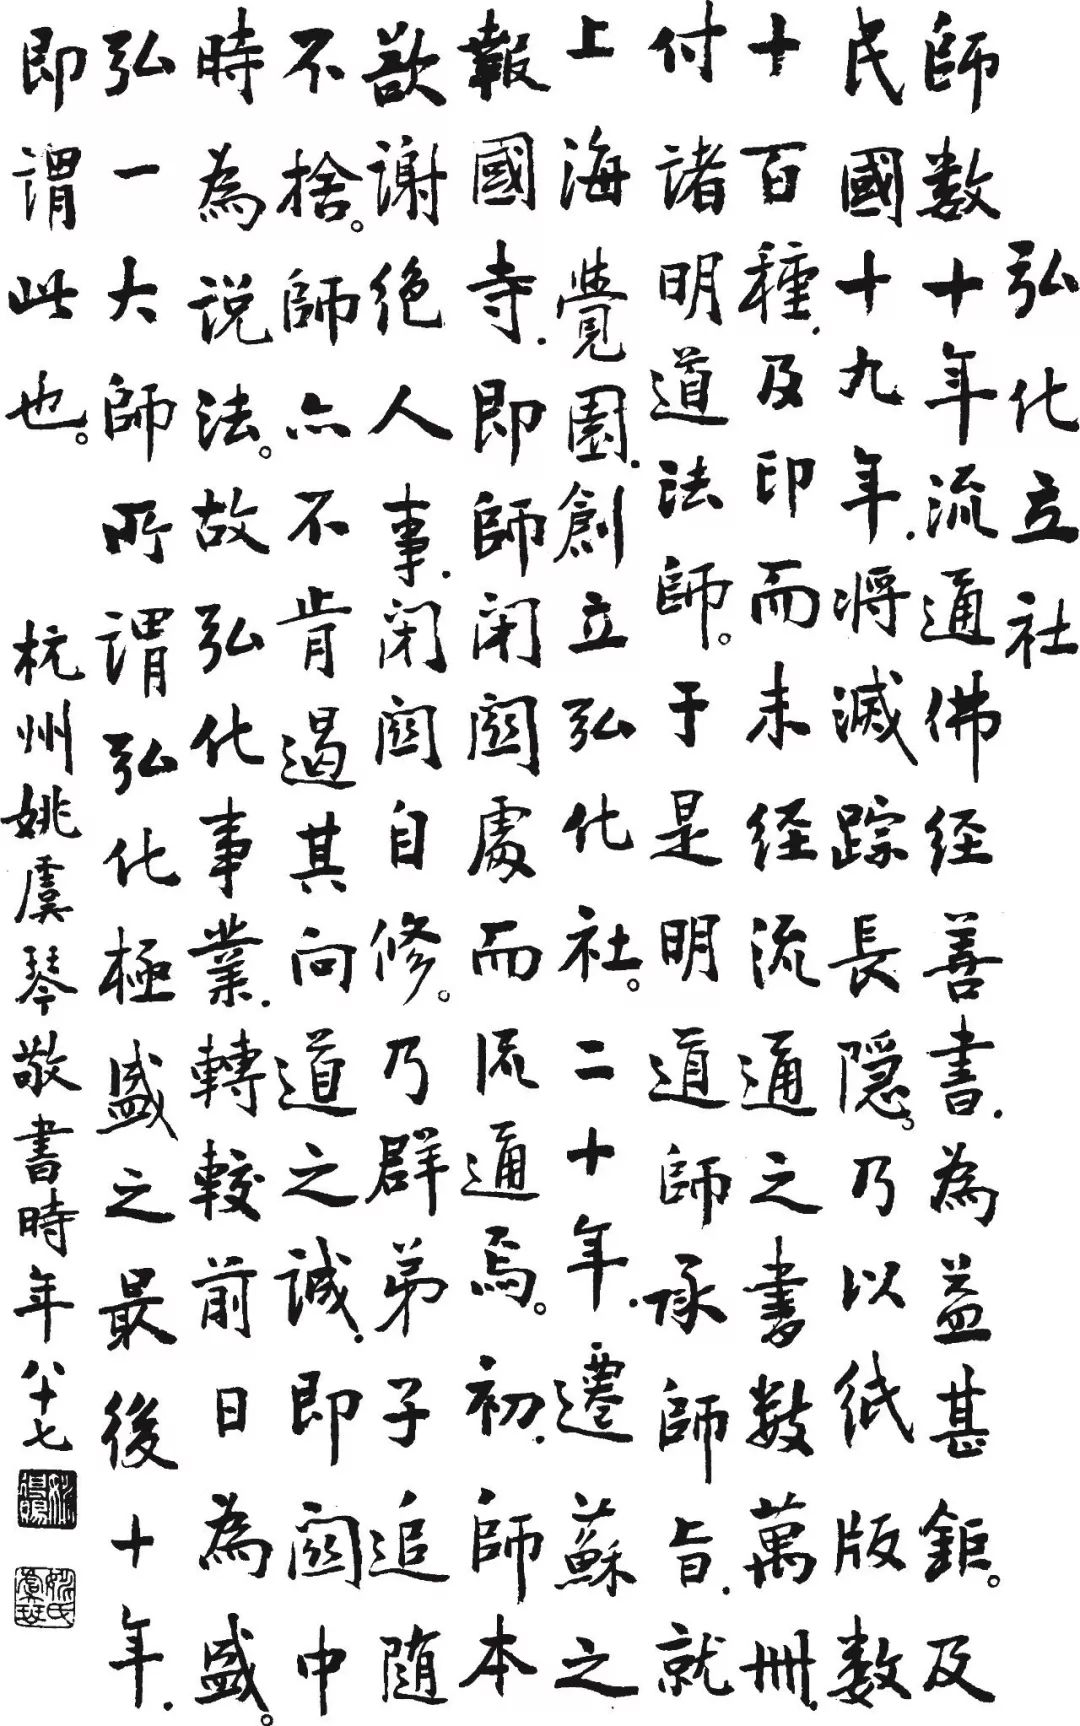 弘化立社
師数十年流通佛经善書.為益甚鉅。及
民國十九年.將滅踪長隱。乃以纸版数
十百種.及印而未经流通之書数萬冊.
付諸明道法師。于是明道師承師旨.就
上海覺園.創立弘化社。二十年.遷蘇之
報國寺.即師闭関處而流通焉。初.師本
欲謝绝人事.闭関自修。乃群弟子追随
不捨。師亦不肯遏其向道之誠.即関中
時為说法。故弘化事業.轉較前日為盛。
弘一大師所謂弘化極盛之最後十年.
即謂此也。
杭州姚虞琴敬書時年八十七
姚氏虞琴